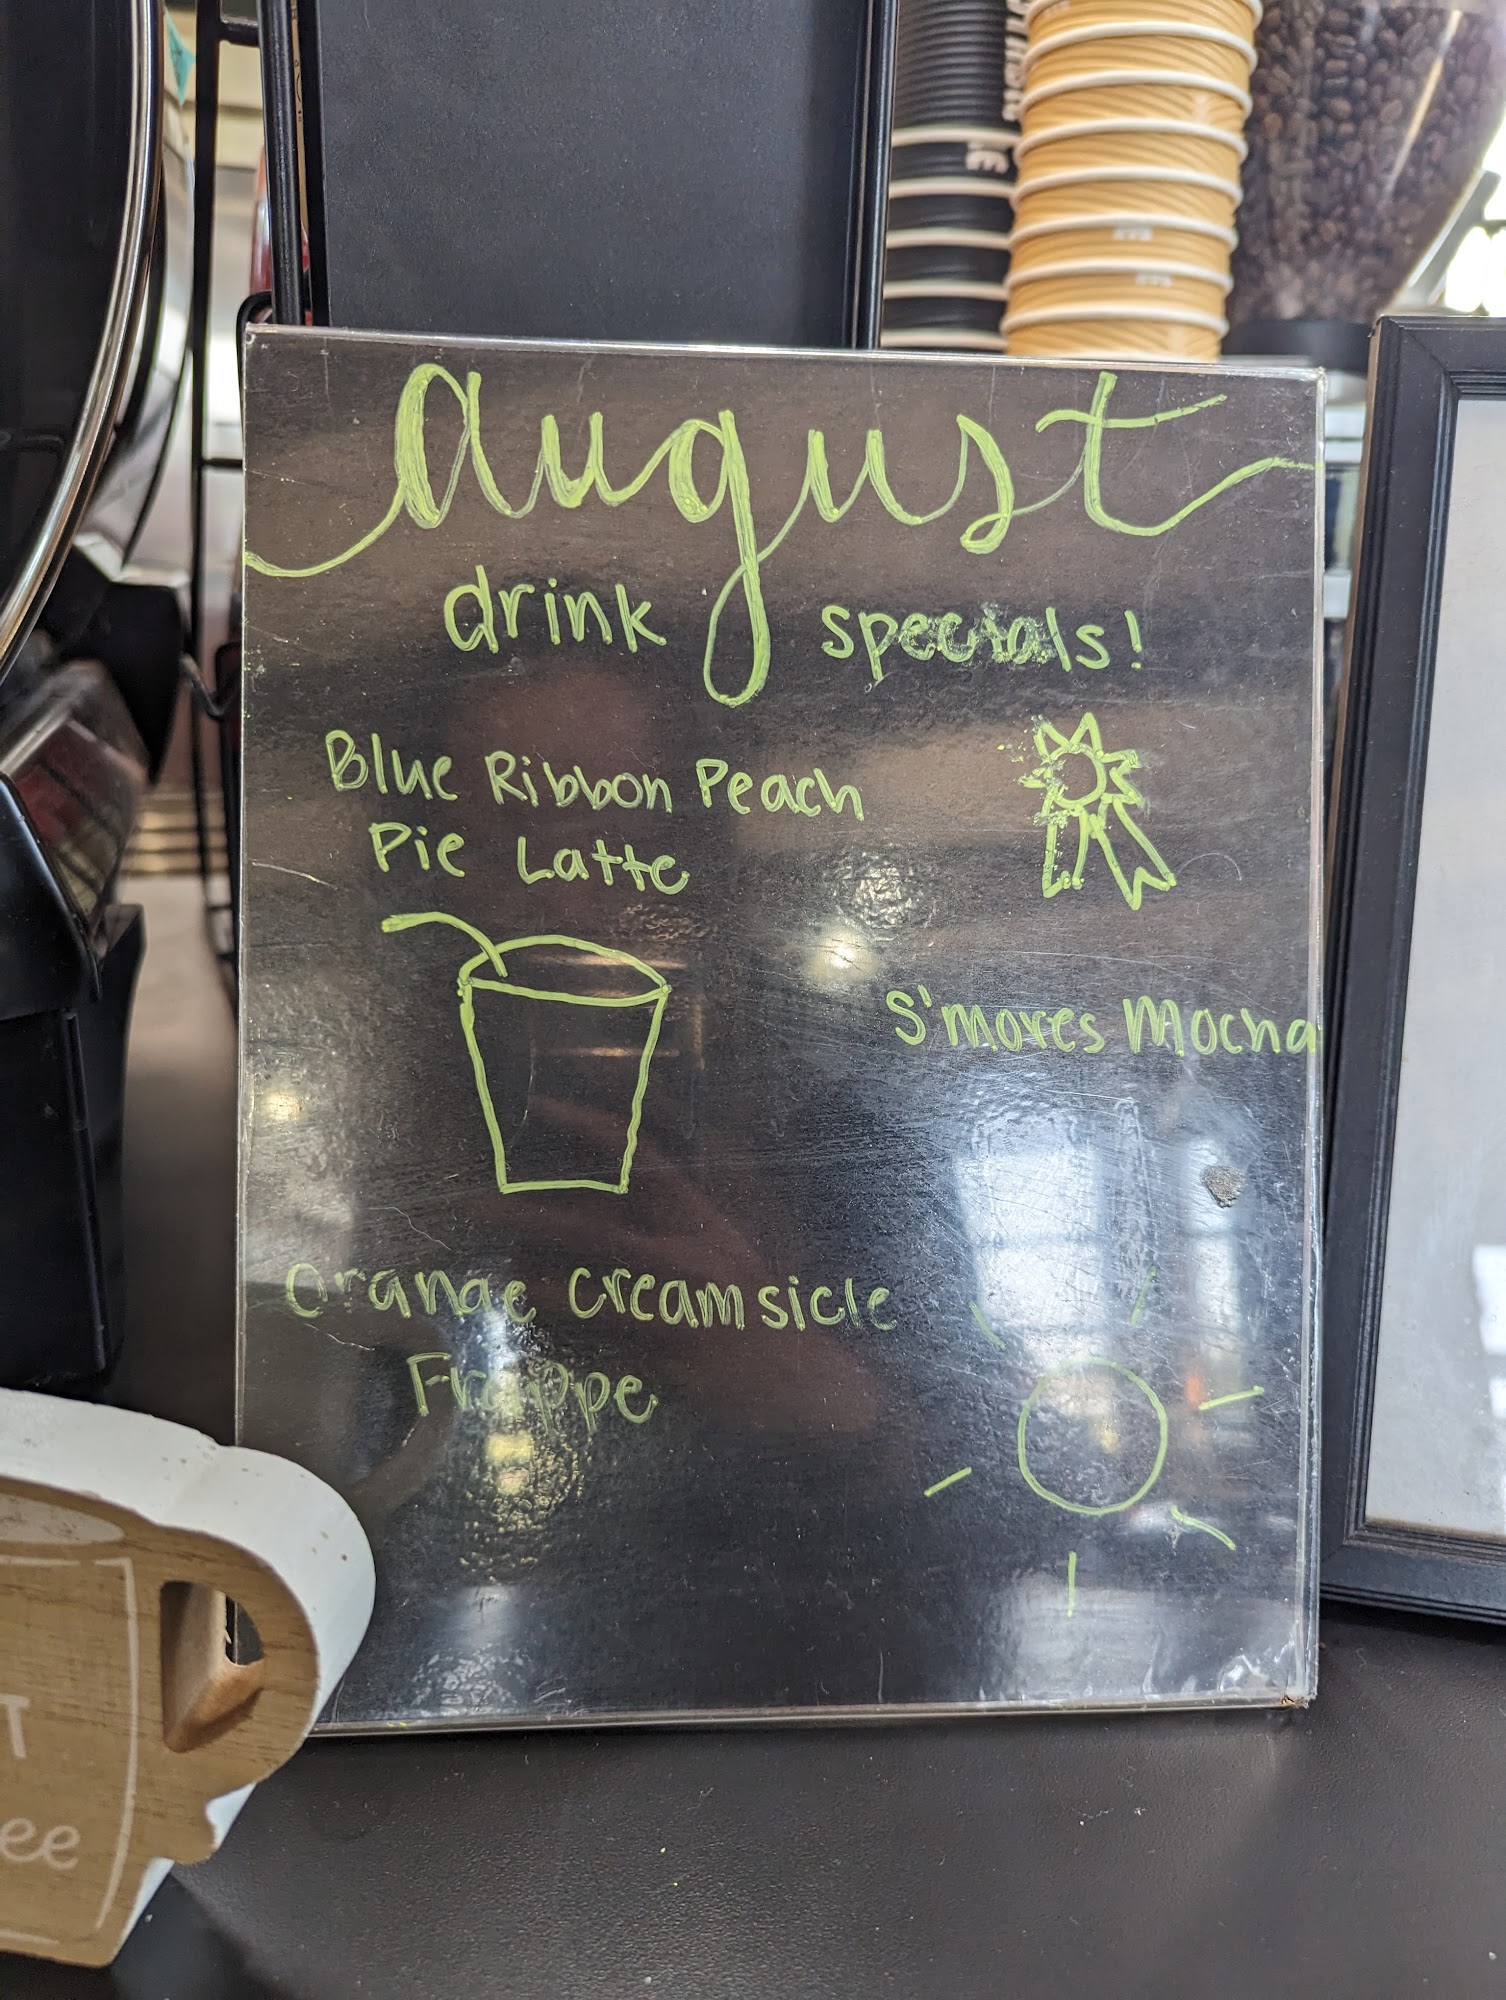 august
drink specials!
Blue Ribbon Peach
Pie Latte
S'mores Mocha
Orange Creamsicle
Frappe